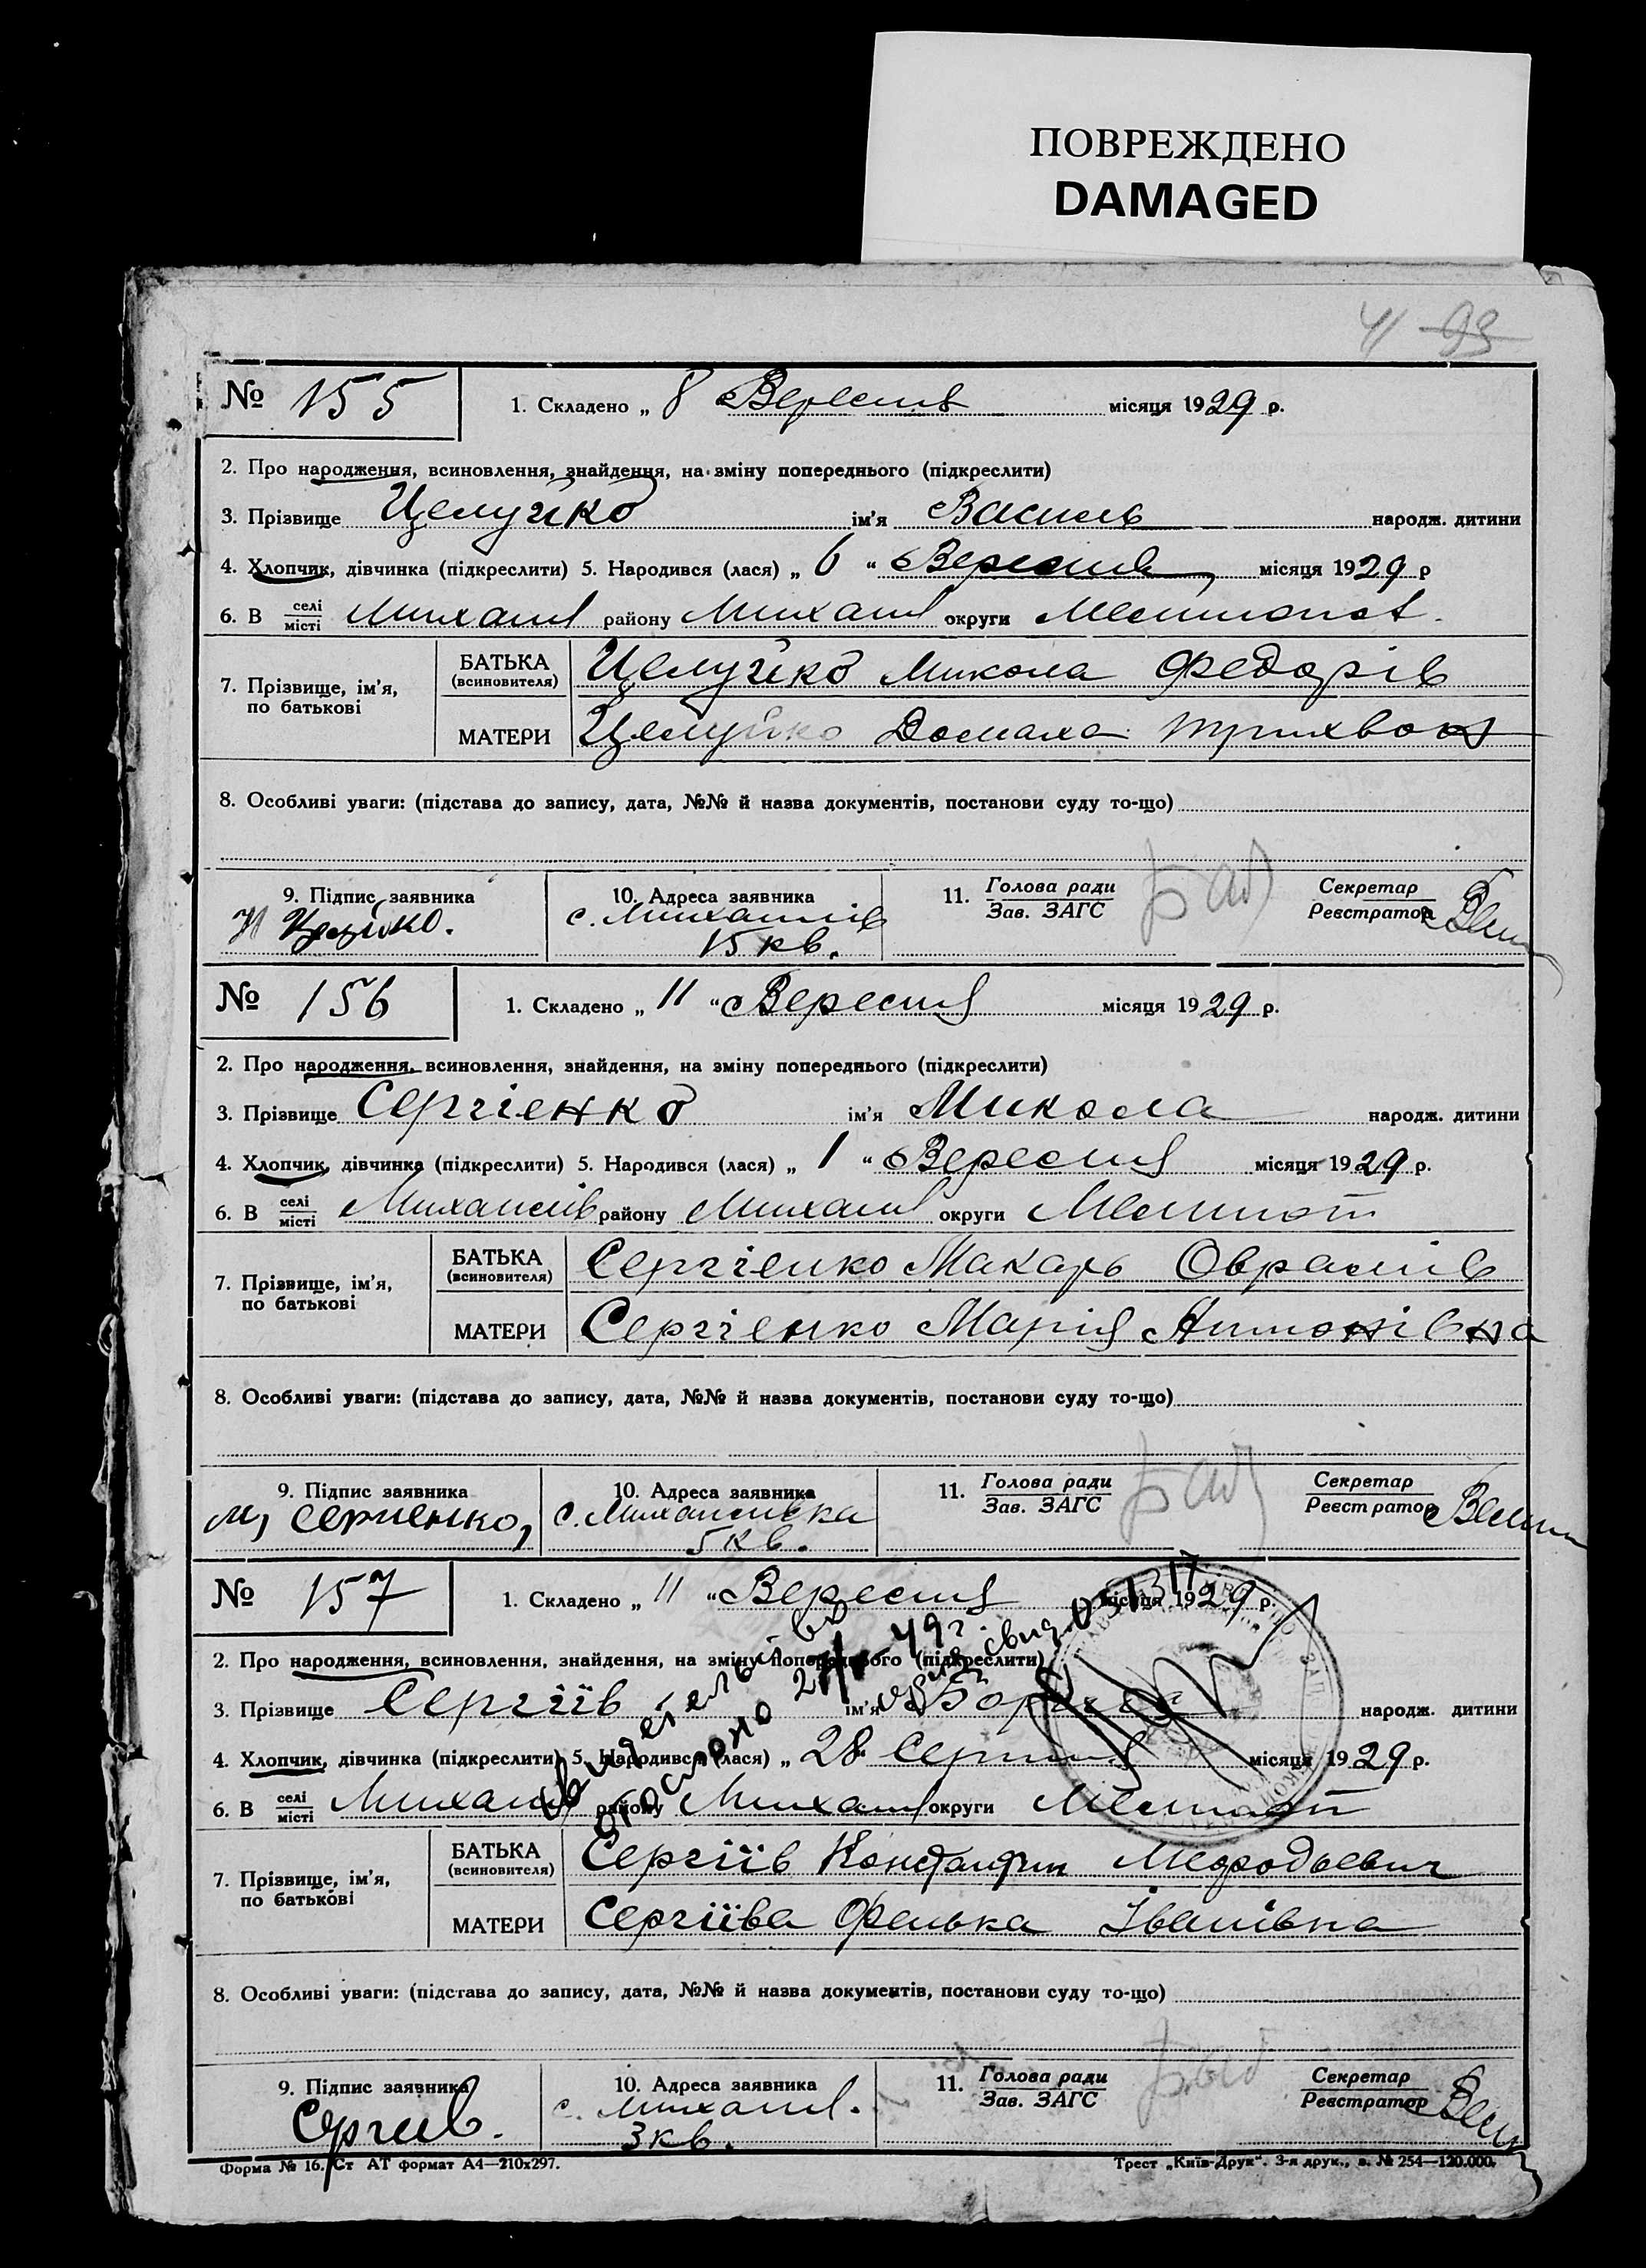 ПОВРЕЖДЕНО
DAMAGED
41 93
№ 155 1. Складено „ 8 Вересня місяця 1929 р.
2. Про народження, всиновлення, знайдення, на зміну попереднього (підкреслити)
3. Прізвище Целуйко ім'я Василь народж. дитини
4. Хлопчик, дівчинка (підкреслити) 5. Народився (лася) „ 6 “ Вересня місяця 1929 р
6. В селі місті Михайлів району Михайл округи Мелітопол.
7. Прізвище, ім'я, по батькові
БАТЬКА (всиновителя) Целуйко Микола Федорів
МАТЕРИ Целуйко Домаха
8. Особливі уваги: (підстава до запису, дата, №№ й назва документів, постанови суду то-що)
9. Підпис заявника 10. Адреса заявника 11. Голова ради Зав. ЗАГС Секретар Реєстратор
Н Целуйко. с. Михайлів
15 кв.
№ 156 1. Складено „ 11 “ Вересня місяця 1929 р.
2. Про народження, всиновлення, знайдення, на зміну попереднього (підкреслити)
3. Прізвище Сергієнко ім'я Микола народж. дитини
4. Хлопчик, дівчинка (підкреслити) 5. Народився (лася) „ 1 “ Вересня місяця 1929 р.
6. В селі місті Михайлів району Михайл округи Меліпот
7. Прізвище, ім'я, по батькові
БАТЬКА (всиновителя) Сергієнко Макарь Оврамів
МАТЕРИ Сергієнко Марія Антонівна
8. Особливі уваги: (підстава до запису, дата, №№ й назва документів, постанови суду то-що)
9. Підпис заявника 10. Адреса заявника 11. Голова ради Зав. ЗАГС Секретар Реєстратор
М, Сергиенко, с. Михайлівка
5 кв.
№ 157 1. Складено „ 11 “ Вересня місяця 1929 р.
2. Про народження, всиновлення, знайдення, на зміну попереднього (підкреслити)
3. Прізвище Сергіїв ім'я Борис народж. дитини
4. Хлопчик, дівчинка (підкреслити) 5. Народився (лася) „ 28 Серпня місяця 1929 р.
6. В селі місті Михайлів району Михайл округи Меліпот
7. Прізвище, ім'я, по батькові
БАТЬКА (всиновителя) Сергіїв Константин Мефодьевич
МАТЕРИ Сергіїва Фенька Іванівна
8. Особливі уваги: (підстава до запису, дата, №№ й назва документів, постанови суду то-що)
9. Підпис заявника 10. Адреса заявника 11. Голова ради Зав. ЗАГС Секретар Реєстратор
Сергиів. с. Михайл.
3 кв.
Форма № 16. Ст АТ формат А4—210х297. Трест „Київ-Друк“. 3-я друк., з. № 254—120.000.